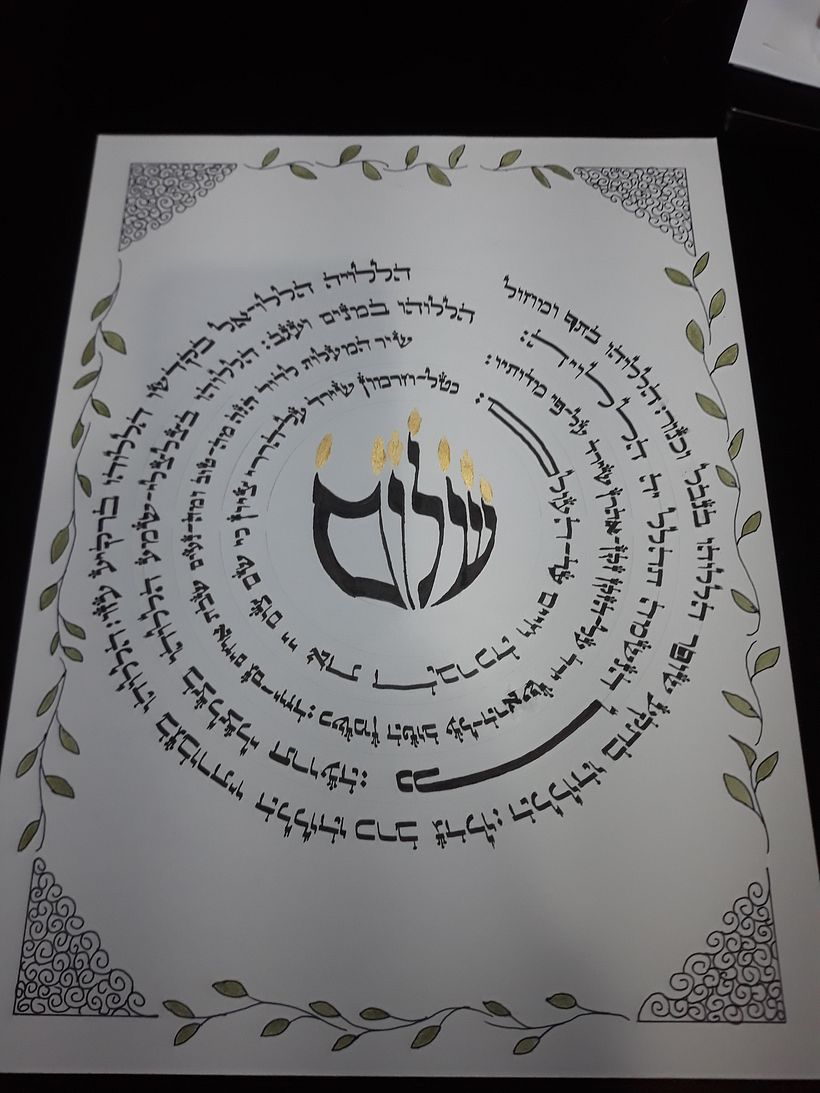 הללויה הללו-אל בקדשו הללוהו ברקיע עזו: הללוהו בגבורתיו הללוהו כרב גדלו: הללוהו בתקע שופר הללוהו בנבל וכנור: הללוהו בתף ומחול
הללוהו במנים ועגב: הללוהו בצלצלי-שמע הללוהו בצלצלי תרועה: כל הנשמה תהלל יה הללויה:
שיר המעלות לדוד הנה מה-טוב ומה-נעים שבת אחים גם-יחד: כשמן הטוב על-הראש ירד על-הזקן זקן-אהרן שירד על-פי מדותיו:
כטל-חרמון שירד על-הררי ציון כי שם צוה יי את הברכה חיים עד-העולם:
שלום